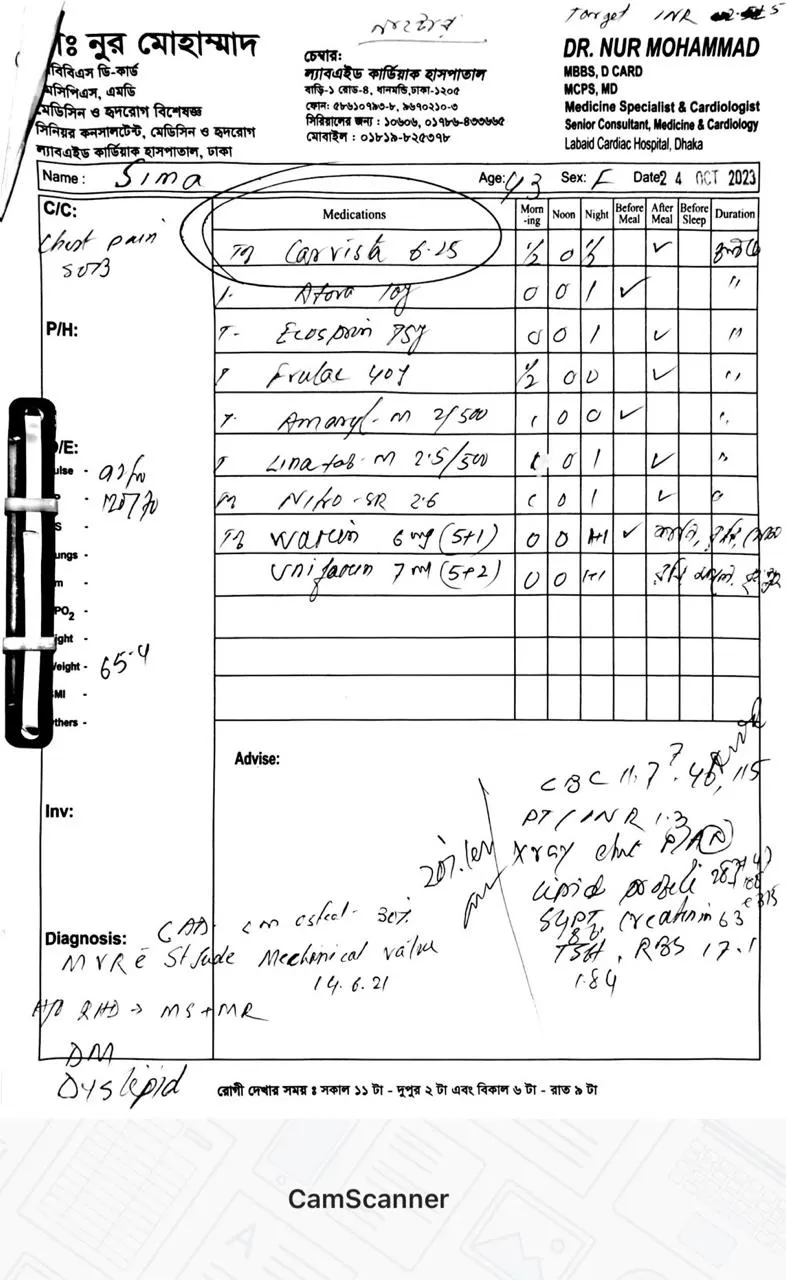 Target INR 2.5
ডাঃ নুর মোহাম্মাদ
এমবিবিএস ডি-কার্ড
এমসিপিএস, এমডি
মেডিসিন ও হৃদরোগ বিশেষজ্ঞ
সিনিয়র কনসালটেন্ট, মেডিসিন ও হৃদরোগ
ল্যাবএইড কার্ডিয়াক হাসপাতাল, ঢাকা
চেম্বার:
ল্যাবএইড কার্ডিয়াক হাসপাতাল
বাড়ি-১ রোড-৪, ধানমন্ডি,ঢাকা-১২০৫
ফোন: ৫৮৬১০৭৯৩-৮, ৯৬৭০২১০-৩
সিরিয়ালের জন্য : ১০৬০৬, ০১৭৬৬-৪৩৩৬৬৫
মোবাইল : ০১৮১৯-৮২৫৩৭৮
DR. NUR MOHAMMAD
MBBS, D CARD
MCPS, MD
Medicine Specialist & Cardiologist
Senior Consultant, Medicine & Cardiology
Labaid Cardiac Hospital, Dhaka
Name : Sima Age: 43 Sex: F Date 24 OCT 2023
C/C:
Chest pain
SOB
P/H:
O/E:
Pulse - 92/
120/70
Lungs -
SPO2
Weight - 65.4
BMI -
Others -
Inv:
Medications Morn-ing Noon Night Before Meal After Meal Before Sleep Duration
Carvista 6.25 1/2 0 1/2 ✓
Atova 10 0 0 1 ✓ "
T- Ecosprin 75 0 0 1 ✓ "
T Frulac 40 1/2 0 0 ✓ "
T. Amaryl-M 2/500 1 0 0 ✓ "
T Linatab-M 2.5/500 1 0 1 ✓ "
Nitro-SR 2.6 1 0 1 ✓ "
Warin 6 mg (5+1) 0 0 1+1 ✓
Unifarin 7 mg (5+2) 0 0 1+1
Advise:
CBC 11.7
PT/INR 1.3
Xray chest P/A
Lipid profile
SGPT, Creatinin 63
TSH, RBS 17.1
1.84
Diagnosis: CAD 30%
MVR c̄ St Jude Mechanical valve
14.6.21
H/O RHD → MS + MR
DM
Dyslipid
রোগী দেখার সময় : সকাল ১১ টা - দুপুর ২ টা এবং বিকাল ৬ টা - রাত ৯ টা
CamScanner